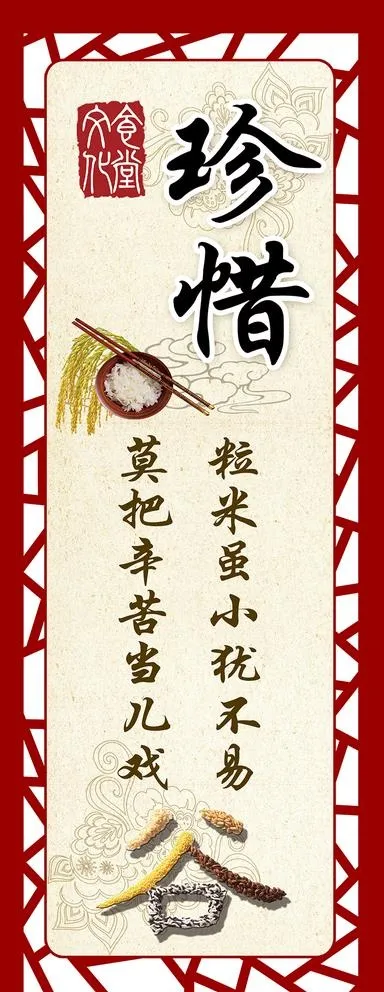 珍惜
食堂文化
粒米虽小犹不易
莫把辛苦当儿戏
谷